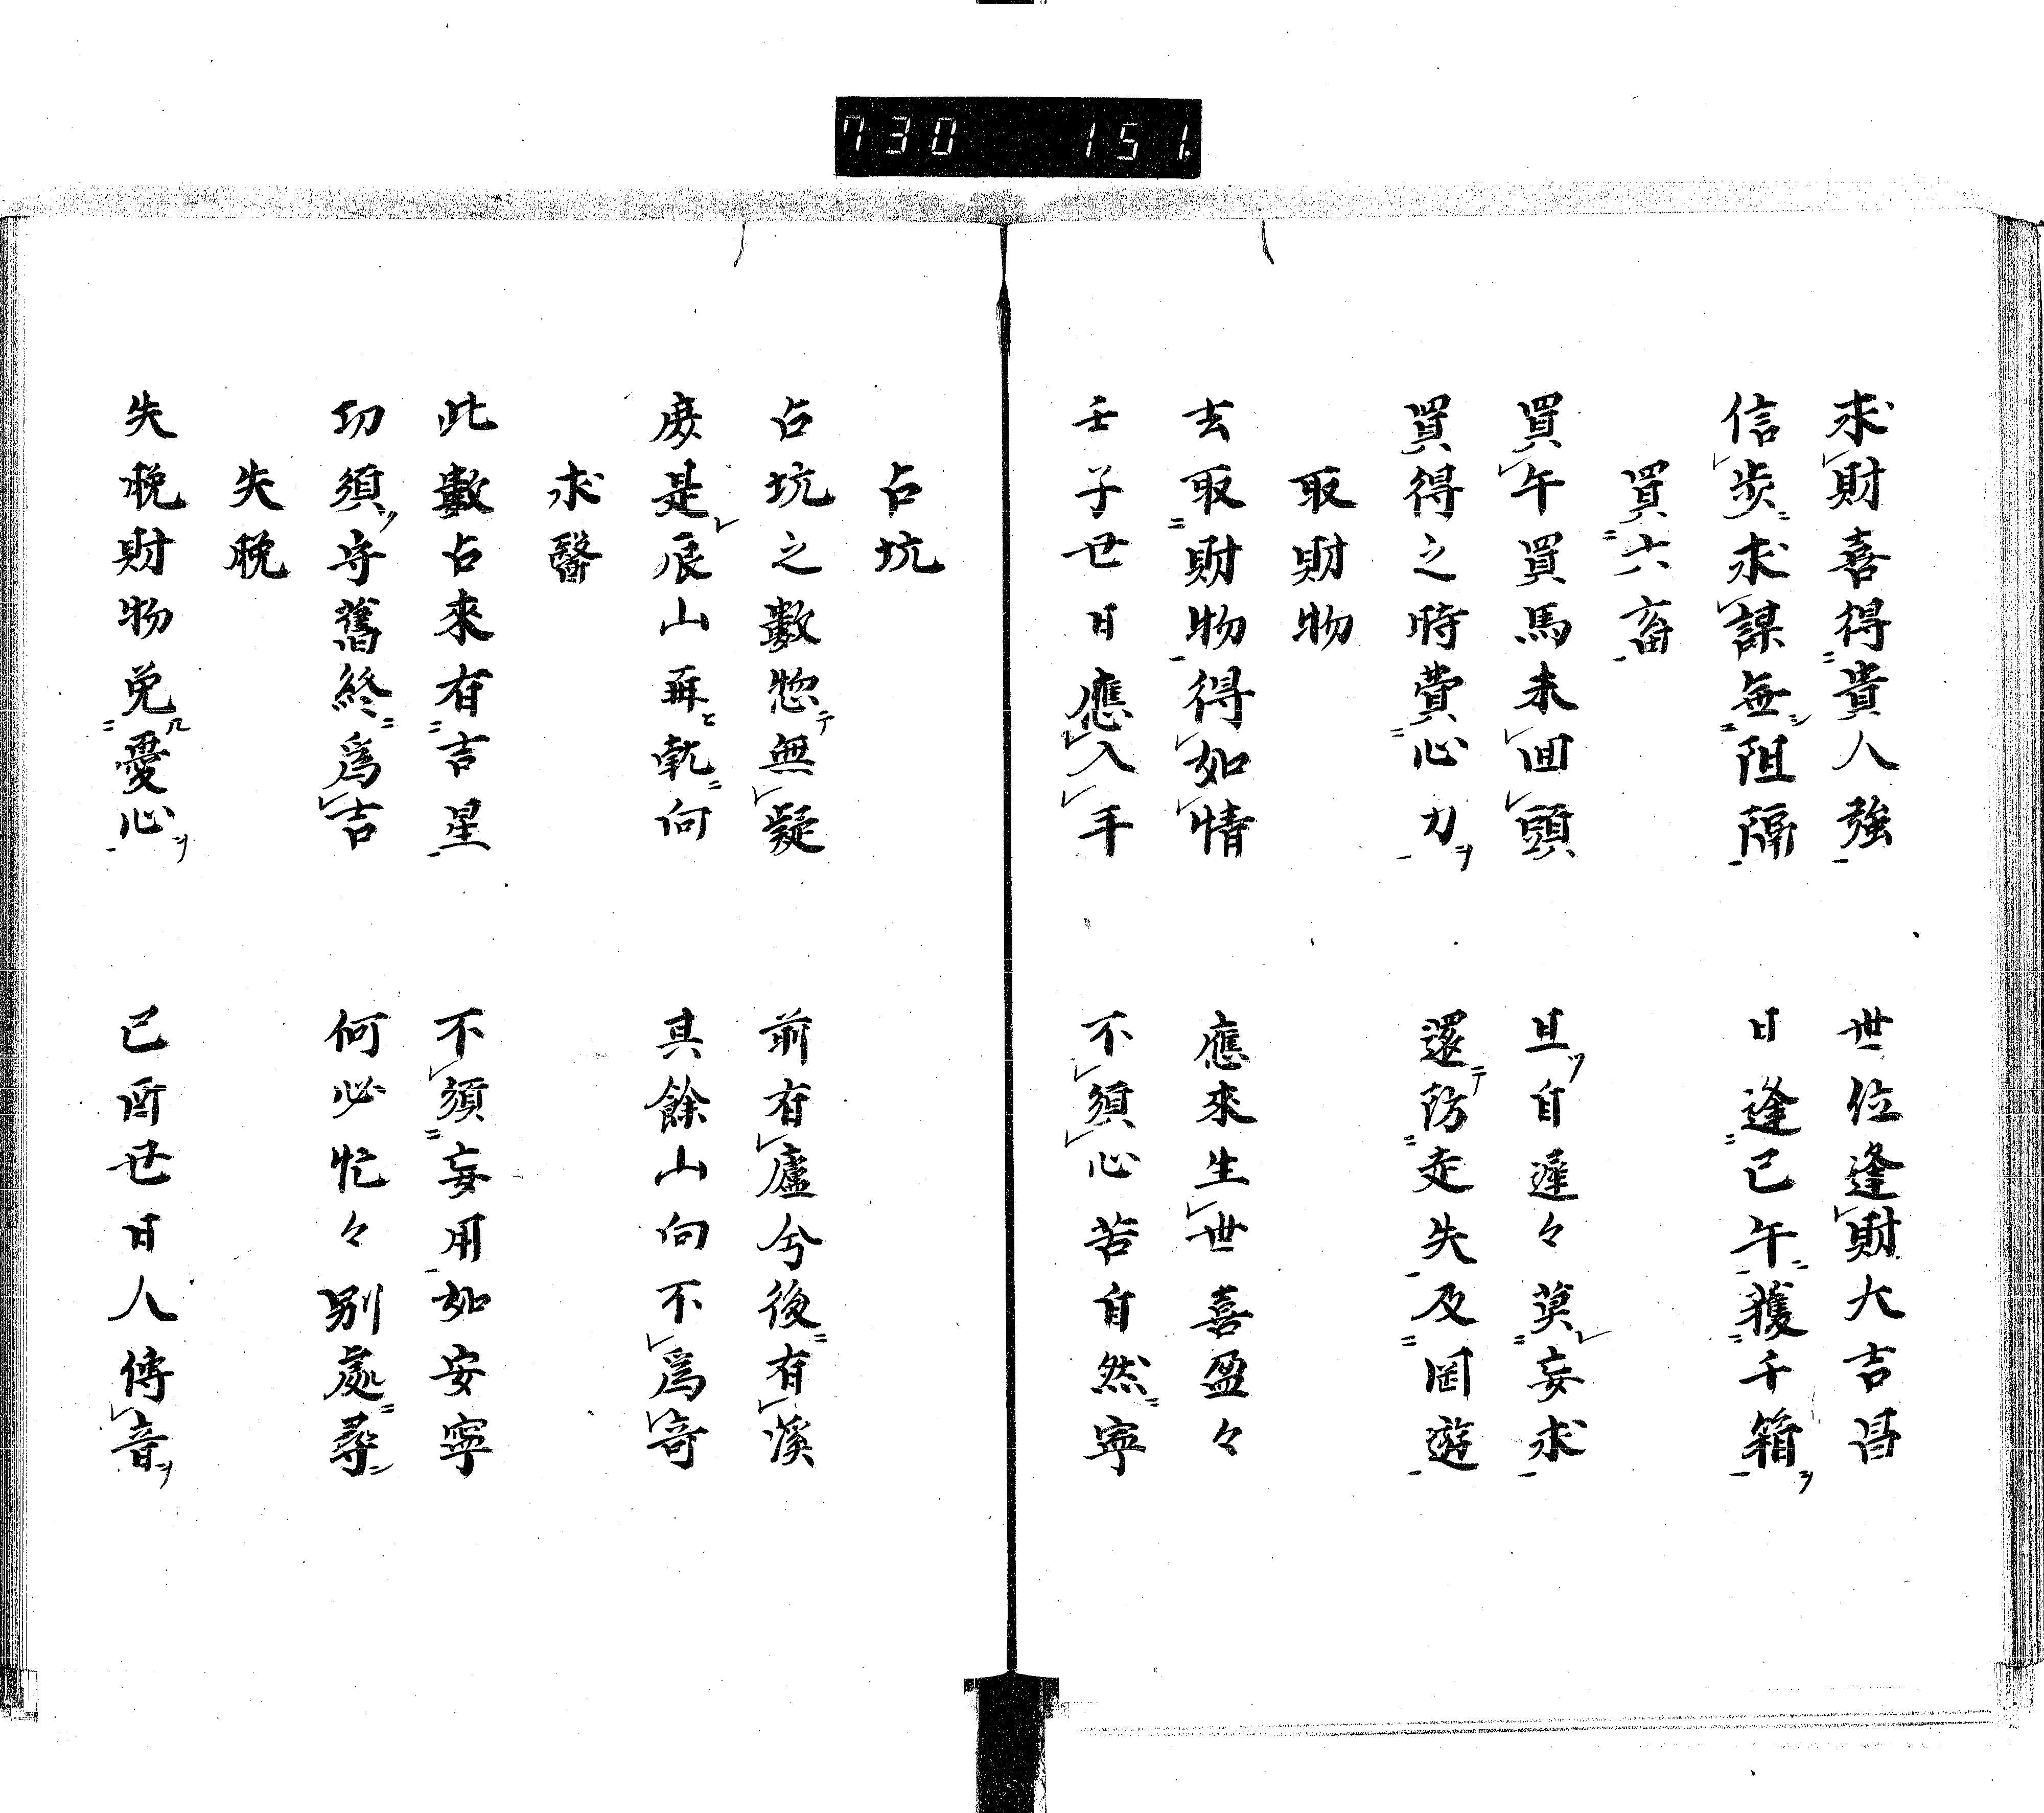 730 151
求財喜得貴人強 世位逢財大吉昌
信步求謀無阻隔 日逢已午獲千箱
買六畜
買午買馬未回頭 且自遲々莫妄求
買得之時費心力 還防走失及囡遊
取財物
去取財物得如情 應來生世喜盈々
壬子世日應入手 不須心苦自然寧
占坑
占坑之數惣無疑 前有廬兮後有溪
庚是辰山再乾向 其餘山向不爲奇
求醫
此數占來有吉星 不須妄用如安寧
切須守舊終爲吉 何必忙々別處尋
失脱
失脱財物免憂心 已酉世日人傳音